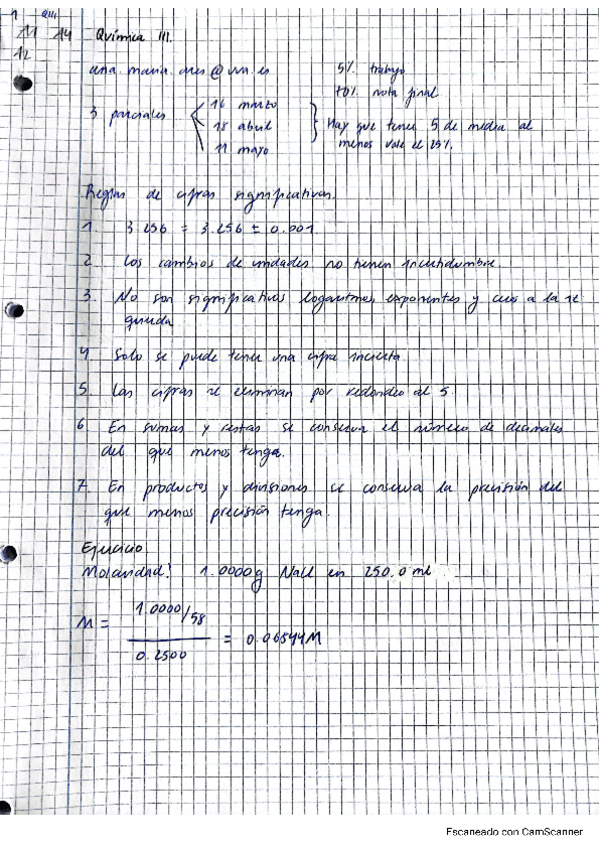 1 QIII
11 14 Química III.
12
ana.maria.ares@uva.es
5% trabajo
70% nota final
3 parciales
16 marzo
18 abril
11 mayo
Hay que tener 5 de media al
menos vale el 25%.
Reglas de cifras significativas.
1. 3.256 = 3.256 ± 0.001
2. Los cambios de unidades no tienen incertidumbre.
3. No son significativos logaritmos, exponentes y ceros a la iz
quierda
4 Solo se puede tener una cifra incierta
5. Las cifras se eliminan por redondeo al 5.
6. En sumas y restas se conserva el número de decimales
del que menos tenga.
7. En productos y divisiones se conserva la precisión del
que menos precisión tenga.
Ejercicio
Molaridad? 1.0000g NaCl en 250.0 ml
M = 1.0000/58
0.2500
= 0.06844M
Escaneado con CamScanner